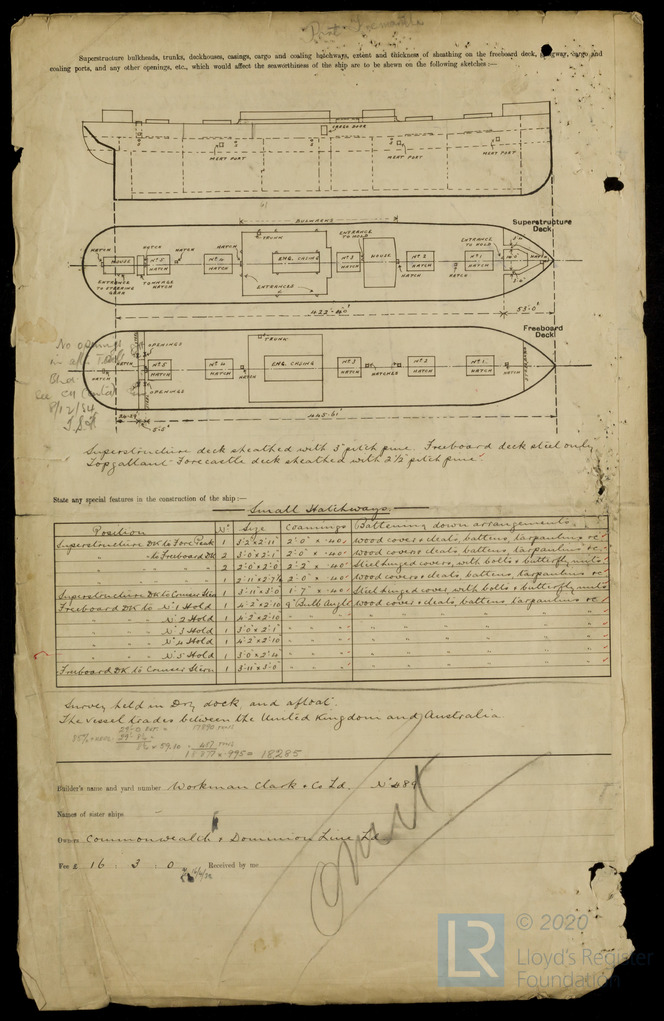 Port Fremantle
Superstructure bulkheads, trunks, deckhouses, casings, cargo and coaling hatchways, extent and thickness of sheathing on the freeboard deck, gangway, cargo and
coaling ports, and any other openings, etc., which would affect the seaworthiness of the ship are to be shewn on the following sketches :—
CARGO DOOR
MEAT PORT
MEAT PORT
MEAT PORT
BULWARKS
Superstructure
Deck
HATCH
HATCH
HATCH
TRUNK
ENTRANCE
TO HOLD
ENTRANCE
TO HOLD
HATCH
HOUSE
Nº 5
HATCH
Nº 4
HATCH
ENG. CASING
Nº 3
HATCH
HOUSE
Nº 2
HATCH
Nº 1
HATCH
HATCH
HATCH
HATCH
ENTRANCE
TO STEERING
GEAR
TONNAGE
HATCH
ENTRANCES
422'-40'
53'-0"
Freeboard
Deck
No openings
in aft
OPENINGS
TRUNK
HATCH
HATCH
Nº 5
HATCH
Nº 4
HATCH
ENG. CASING
Nº 3
HATCH
HATCHES
Nº 2
HATCH
Nº 1
HATCH
HATCH
OPENINGS
8/12/34
445.61'
24.39
5'-0"
Superstructure deck sheathed with 3" pitch pine. Freeboard deck steel only
Topgallant Forecastle deck sheathed with 2½" pitch pine
State any special features in the construction of the ship :—
Small Hatchways.
Position Nº Size Coamings Battening down arrangements
Superstructure DK to Fore Peak 1 3'2"x2'11" 2'0" x .40 wood covers cleats, battens, tarpaulins &c
" " to Freeboard DK 2 3'0"x2'1" 2'0" x .40 wood covers cleats, battens, tarpaulins &c
" " " " 2 2'0"x2'0" 2'2" x .40 Steel hinged covers, with bolts & butterfly nuts
" " " " 1 2'11"x2'7½ 2'0" x .40 wood covers cleats, battens, tarpaulins &c
Superstructure DK to Cruiser Stern 1 3'11"x3'0 1'7" x .40 Steel hinged cover with bolts & butterfly nuts
Freeboard DK to Nº 1 Hold 1 4'2"x2'10 9" Bulb Angle wood cover & cleats, battens, tarpaulins &c
" " " Nº 2 Hold 1 4'2"x2'10 " " " "
" " " Nº 3 Hold 1 3'0"x2'1" " " " "
" " " Nº 4 Hold 1 4'2"x2'10 " " " "
" " " Nº 5 Hold 1 3'0"x2'4" " " " "
Freeboard DK to Cruiser Stern 1 3'11"x3'0" " " " "
Survey held in Dry dock, and afloat.
The vessel trades between the United Kingdom and Australia.
x .995 = 18285
Builder's name and yard number Workman Clark & Co Ld. Nº 489
Names of sister ships —
Owners Commonwealth & Dominion Line Ld
Fee £ 16 : 3 : 0 Received by me
Omit
LR
© 2020
Lloyd's Register
Foundation